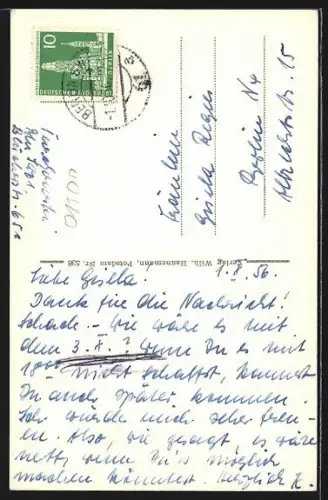 10
DEUTSCHE BUNDESPOST
BERLIN
BERLIN
Fräulein
Gisela
Berlin N4
15
0400
Verlag Wilh. Hannemann, Potsdam Nr. 538
1.8.56.
Liebe Gisela.
Dank für die Nachricht!
Schade. – Wie wäre es mit
dem 3.8.? Wenn Du es mit
1800 nicht schaffst, kannst
Du auch später kommen.
Ich würde mich sehr freu-
en. Also, wie gesagt, es wäre
nett, wenn Du's möglich
machen könntest. Herzlich K.